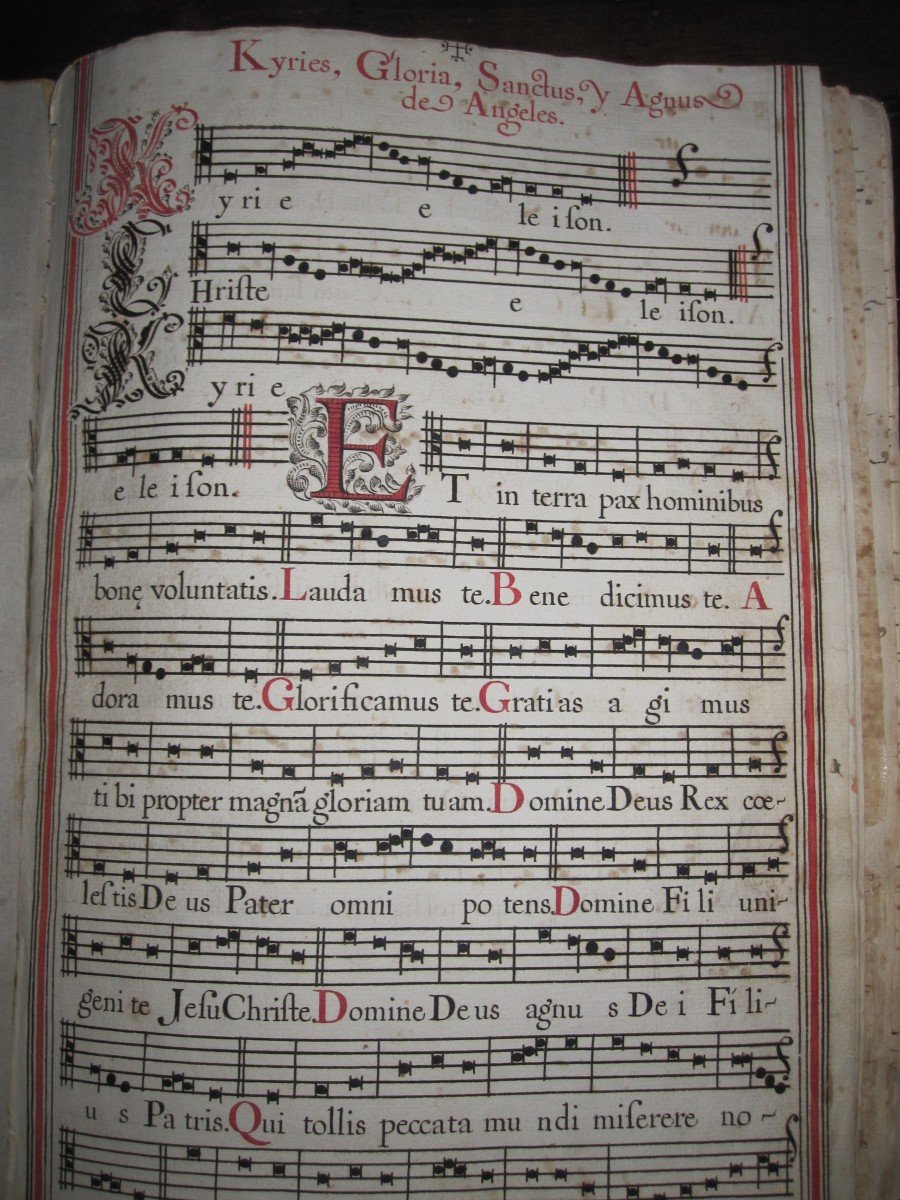 Kyries, Gloria, Sanctus, y Agnus
de Angeles.
Kyrie e leiſon.
CHriſte e leiſon.
Kyrie
e leiſon. ET in terra pax hominibus
bonę voluntatis. Lauda mus te. Bene dicimus te. A
dora mus te. Glorificamus te. Gratias a gi mus
ti bi propter magnã gloriam tuam. Domine Deus Rex coe~
leſtis De us Pater omni po tens. Domine Fi li uni~
geni te JeſuChriſte. Domine De us agnu s De i Fí li~
u s Pa tris. Qui tollis peccata mu ndi miſerere no~